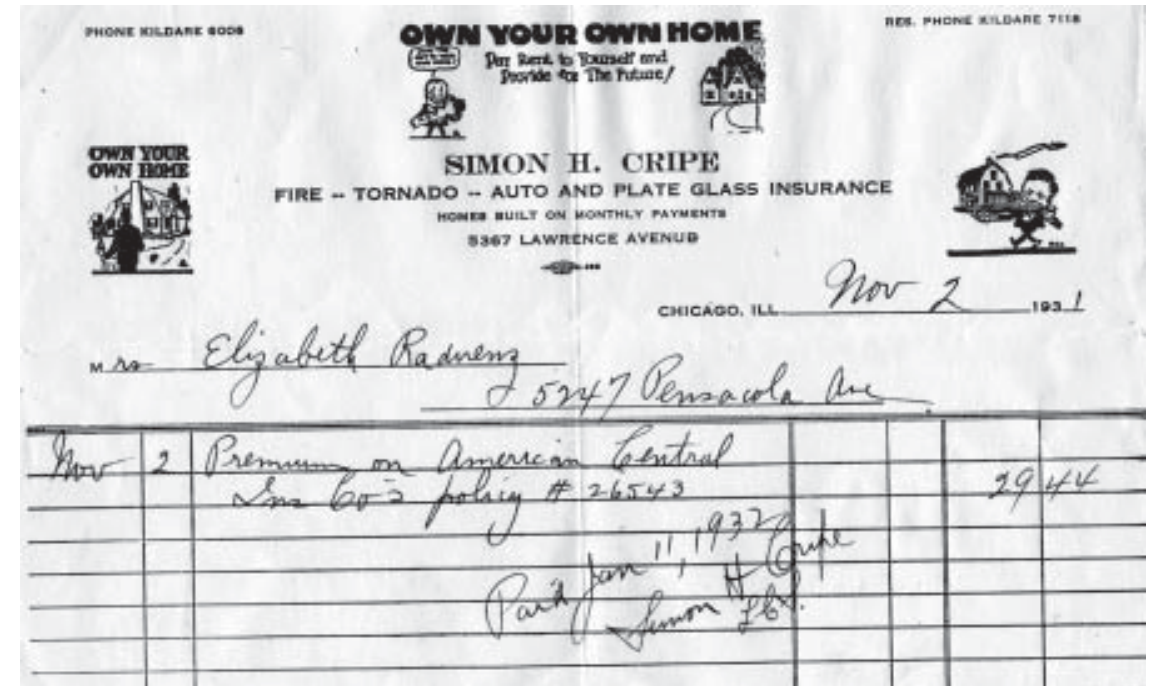 PHONE KILDARE 6008
RES. PHONE KILDARE 7118
OWN YOUR OWN HOME
Pay Rent to Yourself and
Provide for The Future!
OWN YOUR
OWN HOME
SIMON H. CRIPE
FIRE -- TORNADO -- AUTO AND PLATE GLASS INSURANCE
HOMES BUILT ON MONTHLY PAYMENTS
5367 LAWRENCE AVENUE
CHICAGO, ILL. Nov 2 1931
Mrs Elizabeth Raduenz
5247 Pensacola Ave
Nov 2 Premium on American Central
Ins Co's policy # 26543 29 44
Paid Jan 11, 1932
Simon H Cripe